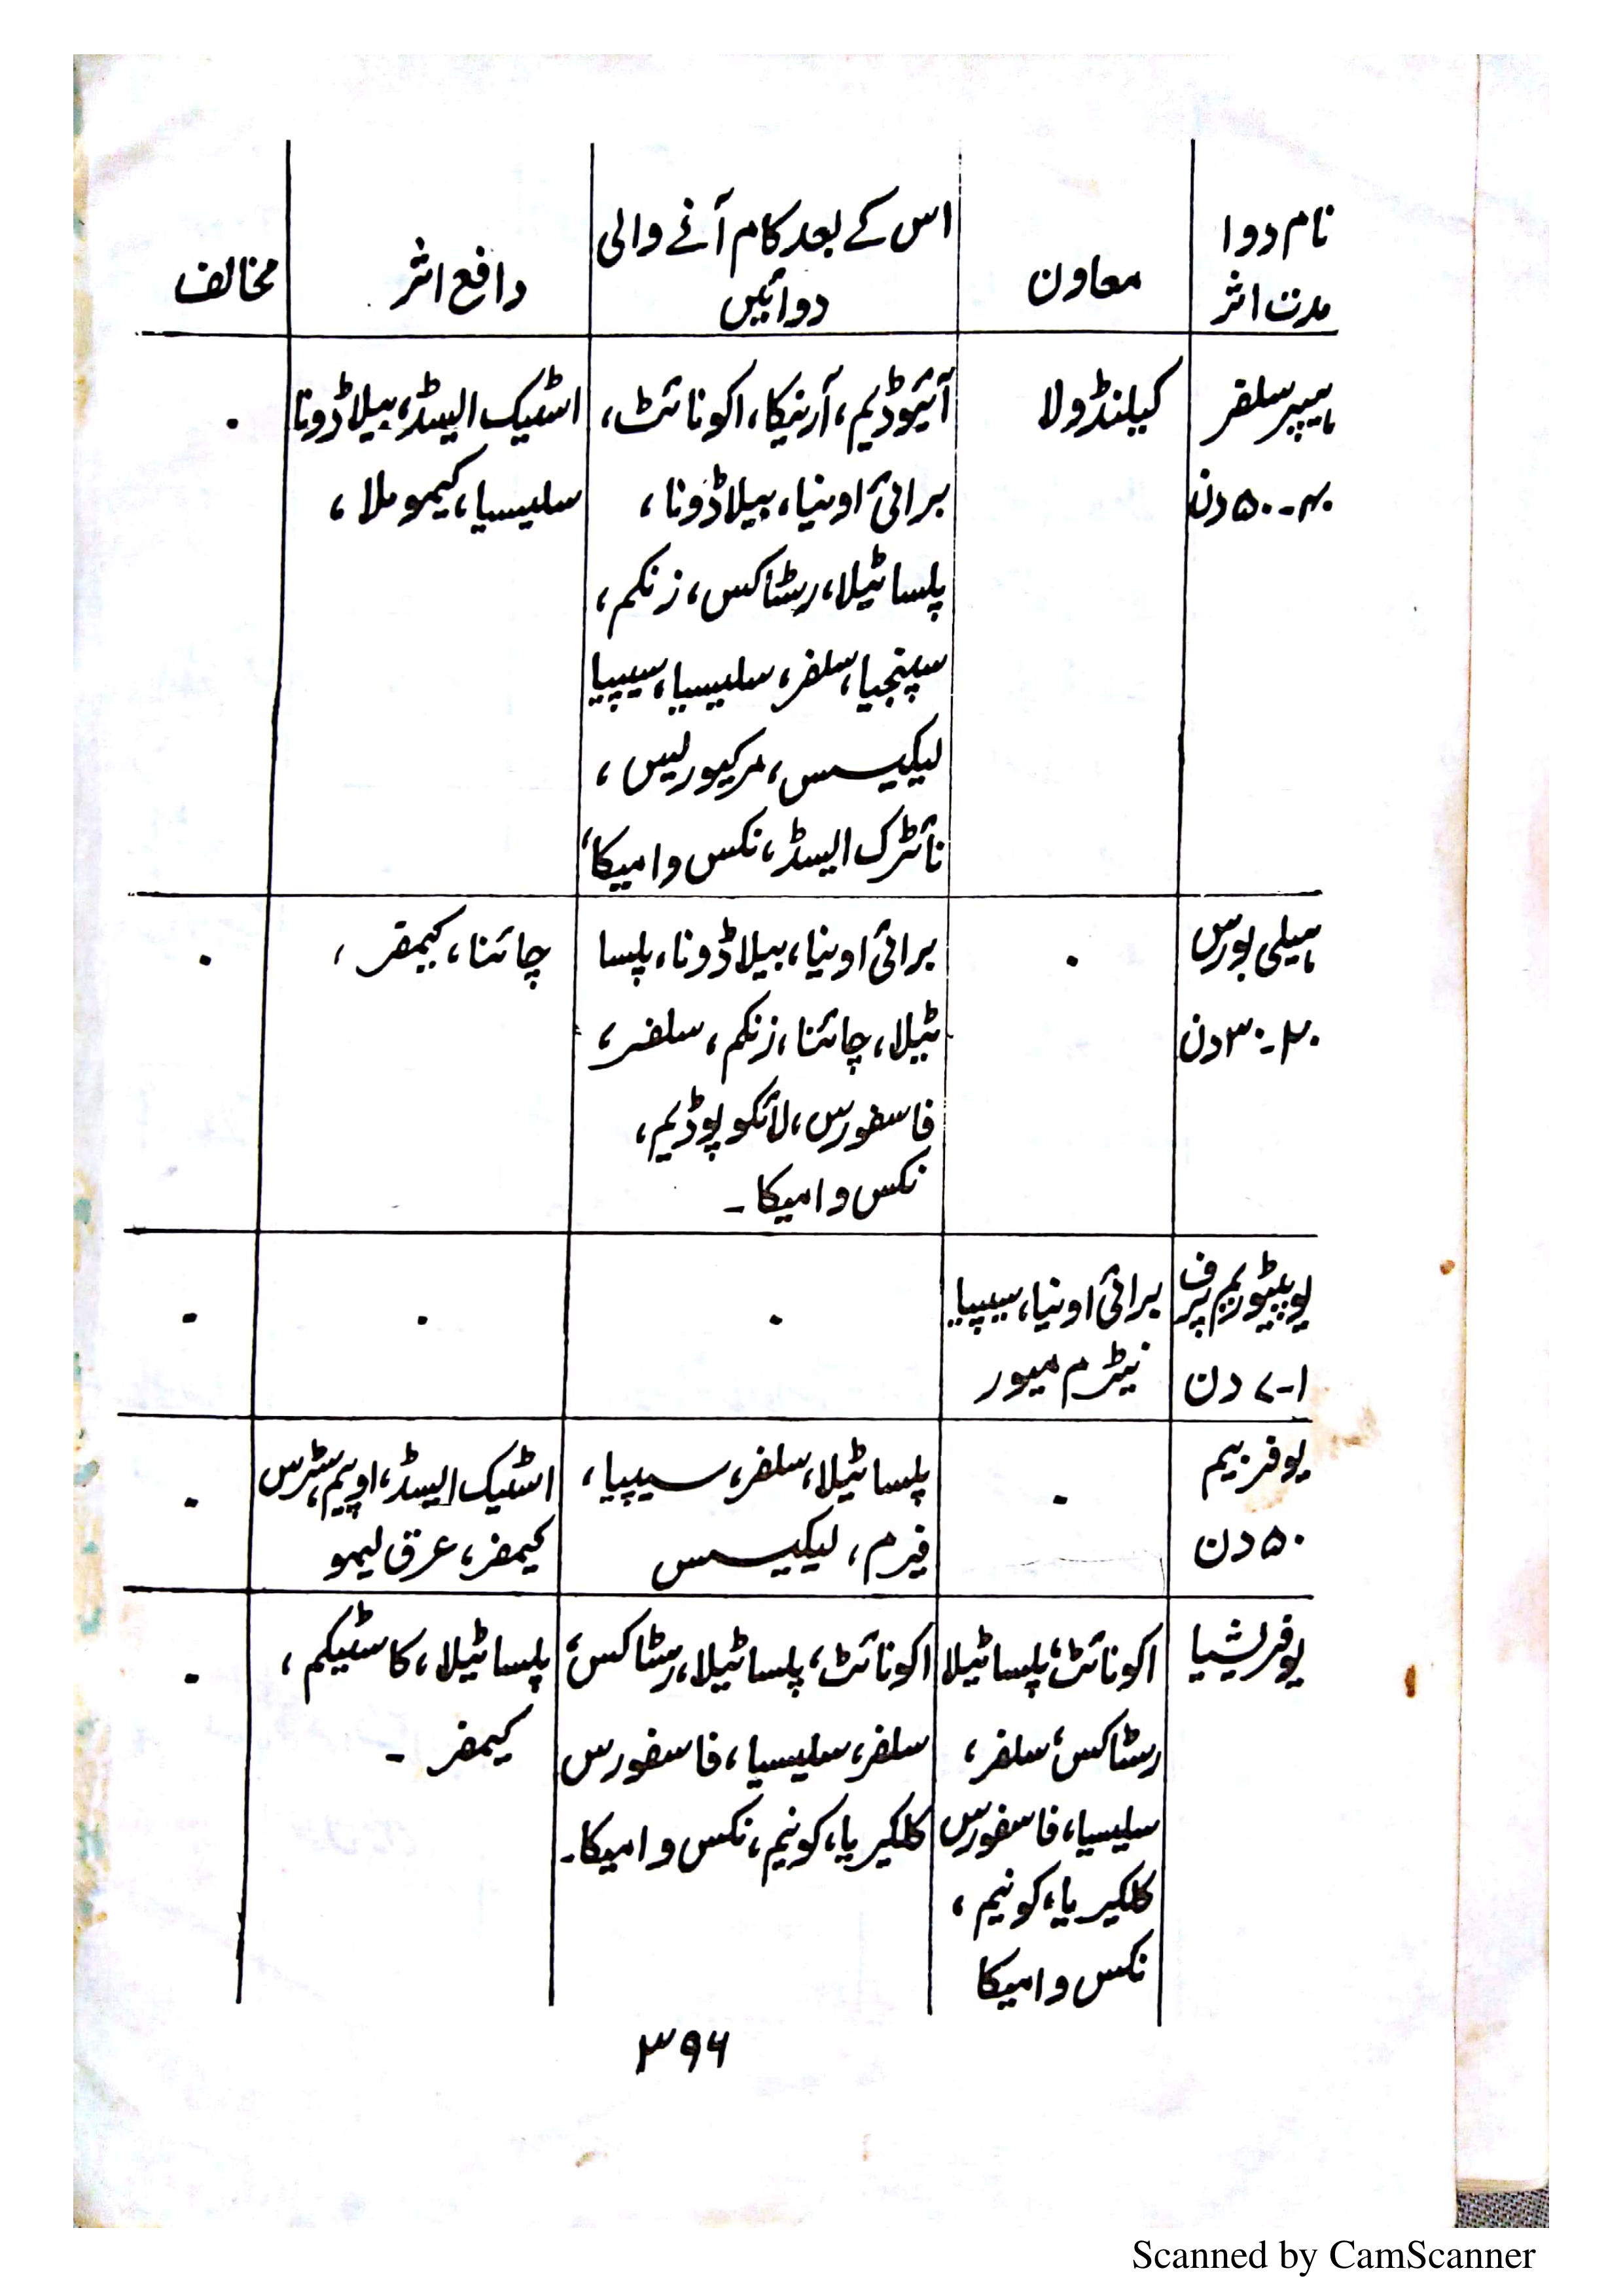 نام دوا
مدت اثر
معاون
اس کے بعد کام آنے والی
دوائیں
دافع اثر
مخالف
ہیپر سلفر
۴۰-۵۰ دن
کیلنڈولا
آئیوڈیم، آرنیکا، اکونائٹ،
برائی اونیا، بیلاڈونا،
پلساٹیلا، رسٹاکس، زنکم،
سپنجیا، سلفر، سلیسیا، سیپیا
لیکیسس، مرکیورلیس،
نائٹرک ایسڈ، نکس وامیکا،
اسٹیک ایسڈ، بیلاڈونا
سلیسیا، کیمو ملا،
۰
ہیلی بورس
۲۰-۳۰ دن
۰
برائی اونیا، بیلاڈونا، پلسا
ٹیلا، چائنا، زنکم، سلفر،
فاسفورس، لائکو پوڈیم،
نکس وامیکا ۔
چائنا، کیمفر،
۰
یوپیٹوریم پرف
۱-۷ دن
برائی اونیا، سیپیا
نیٹرم میور
۰
۰
۰
یوفربیم
۵۰ دن
۰
پلساٹیلا، سلفر، سیپیا،
فیرم، لیکیسس
اسٹیک ایسڈ، اوپیم، سٹرس
کیمفر، عرق لیمو
۰
یوفریشیا
اکونائٹ، پلساٹیلا
رسٹاکس، سلفر،
سلیسیا، فاسفورس
کلکیریا، کونیم،
نکس وامیکا
اکونائٹ، پلساٹیلا، رسٹاکس،
سلفر، سلیسیا، فاسفورس
کلکیریا، کونیم، نکس وامیکا۔
پلساٹیلا، کاسٹیکم،
کیمفر ۔
۰
۳۹۶
Scanned by CamScanner